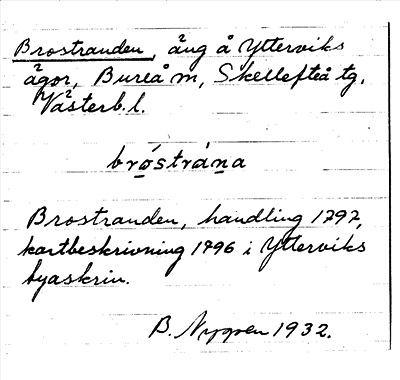 Brostranden, äng å Ytterviks
ägor, Bureå sn, Skellefteå tg,
Västerb. l.
bró̱strá̱na
Brostranden, handling 1797,
kartbeskrivning 1796 i Ytterviks
byaskrin.
B. Nygren 1932.